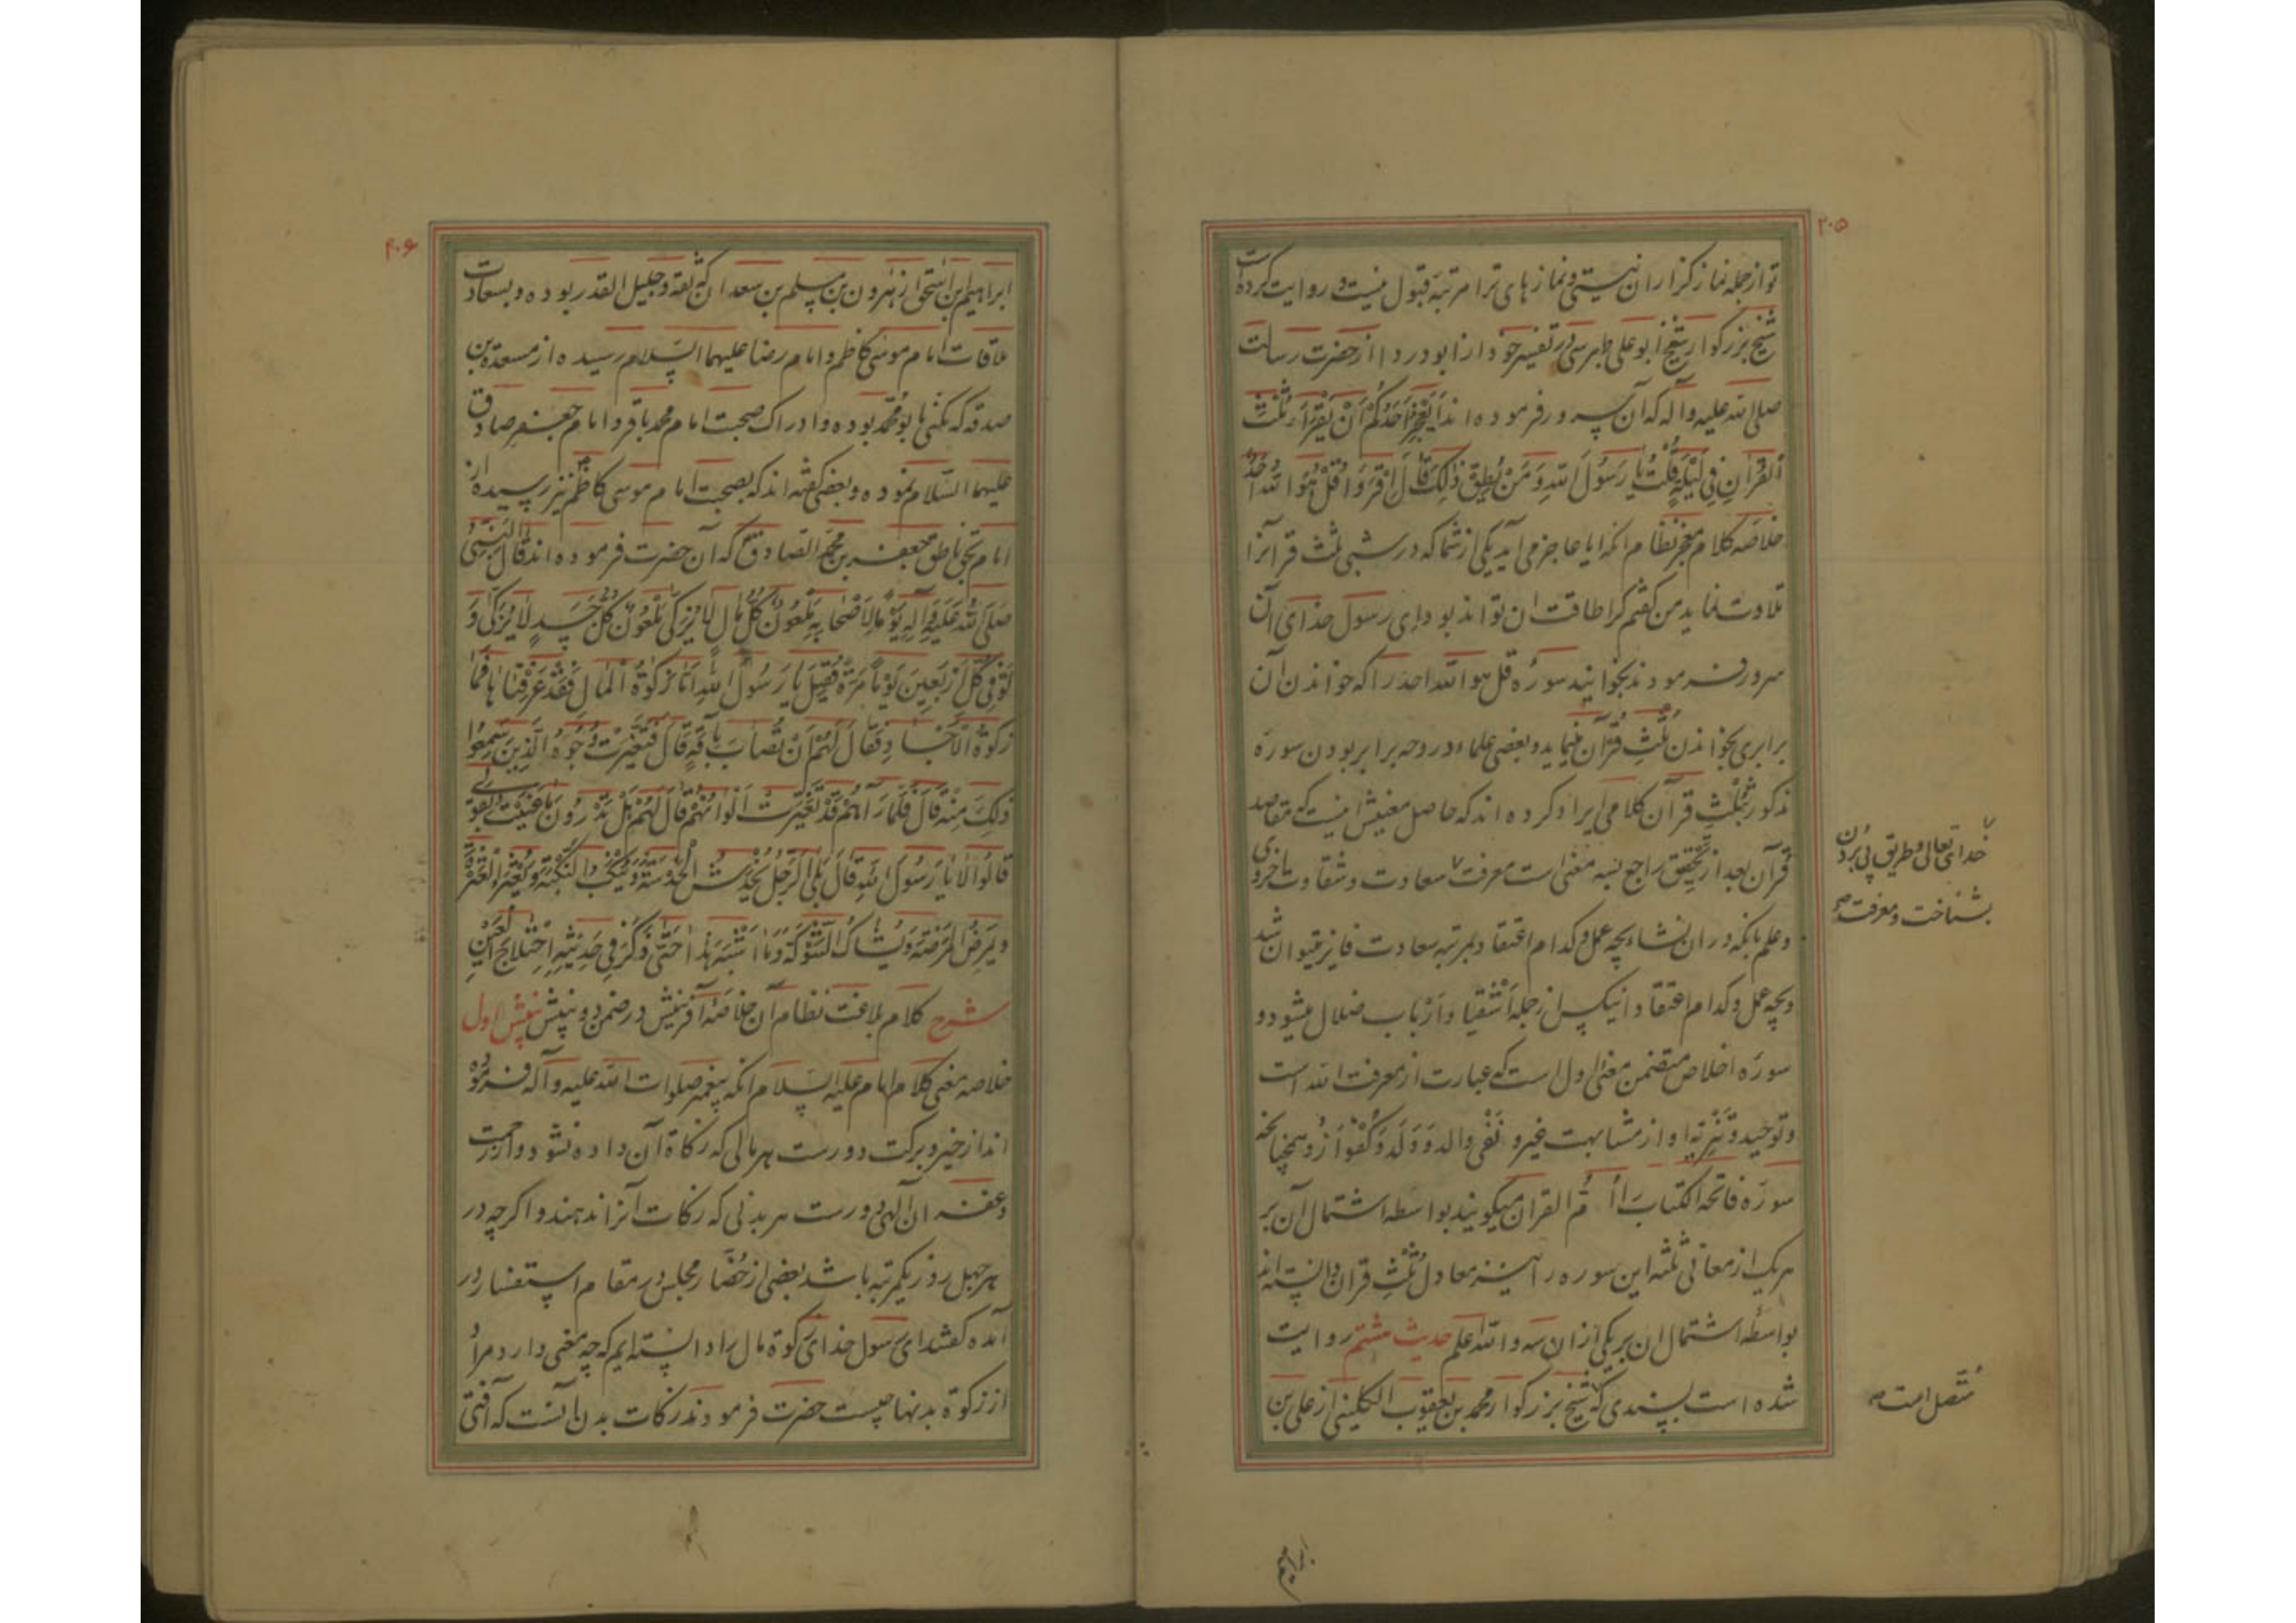 ۲۰۵
تو از جمله نماز کزاران نیستی و نمازهای ترا مرتبه قبول نیست و روایت کرده است
شیخ بزرکوار شیخ ابو علی طبرسی در تفسیر خود از ابو دردا از حضرت رسالت
صلی الله علیه و آله که آن سرور فرموده اند أَیَعْجِزُ أَحَدُکُمْ أَنْ یَقْرَأَ ثُلُثَ
الْقُرْآنِ فِی لَیْلَةٍ قُلْتُ یَا رَسُولَ اللهِ وَ مَنْ یُطِیقُ ذٰلِکَ قَالَ اقْرَؤُا قُلْ هُوَ اللهُ أَحَدٌ
خلاصه کلام معجز نظام انکه ایا عاجز می آید یکی از شما که در شبی ثلث قرانرا
تلاوت نماید من کفتم کرا طاقت ان تواند بود ای رسول خدای آن
سرور فرمودند بخوانید سوره قل هو الله احد را که خواندن آن
برابری بخواندن ثُلُثِ قُرْآن مینماید و بعضی علماء در وجه برابر بودن سوره
مذکور بثُلُثِ قرآن کلامی ایراد کرده اند که حاصل معنیش اینست که مقاصد
قرآن بعد از تحقیق راجع بسه معنی است معرفت سعادت و شقاوت اخروی
وعلم بانکه در ان نشاء بچه عمل و کدام اعتقاد بمرتبه سعادت فایز میتوان شد
و بچه عمل و کدام اعتقاد انیکس از جمله اشقیا و ارباب ضلال میشود و
سوره اخلاص متضمن معنی اول است که عبارت از معرفت الله است
و توحید و تنزیه او از مشابهت غیر و نفی والد و ولد و کفو از و همچنانچه
سوره فاتحة الکتاب را اُمّ القران میکویند بواسطه اشتمال آن بر
هریک از معانی ثلثه این سوره را نیز معادل ثُلُثِ قران دانسته اند
بواسطه اشتمال ان بر یکی از ان سه و الله اعلم حدیث هشتم روایت
شده است بسندی که شیخ بزرکوار محمد بن یعقوب الکلینی از علی بن
خدای تعالی و طریق پی بردن
بشناخت و معرفت
متصل است
ابراهیم
۲۰۶
ابراهیم ابن اسحق از هرون بن مسلم بن سعدان که ثقه و جلیل القدر بوده و بسعادت
ملاقات امام موسی کاظم و امام رضا علیهما السلام رسیده از مسعدة بن
صدقه که مکنی بابو محمد بوده و ادراک صحبت امام محمد باقر و امام جعفر صادق
علیهما السلام نموده و بعضی کفته اند که بصحبت امام موسی کاظم نیز رسیده از
امام بحق ناطق جعفر بن محمد الصادق که آن حضرت فرموده اند قال النبی
صَلَّی اللهُ عَلَیْهِ وَ آلِهِ یَوْماً لِأَصْحَابِهِ مَلْعُونٌ کُلُّ مَالٍ لَا یُزَکَّی مَلْعُونٌ کُلُّ جَسَدٍ لَا یُزَکَّی وَ
لَوْ فِی کُلِّ أَرْبَعِینَ یَوْماً مَرَّةً فَقِیلَ یَا رَسُولَ اللهِ أَمَّا زَکٰوةُ الْمَالِ فَقَدْ عَرَفْنَاهَا فَمَا
زَکٰوةُ الْأَجْسَادِ فَقَالَ لَهُمْ أَنْ تُصَابَ بِآفَةٍ قَالَ فَتَغَیَّرَتْ وُجُوهُ الَّذِینَ سَمِعُوا
ذٰلِکَ مِنْهُ قَالَ فَلَمَّا رَآهُمْ قَدْ تَغَیَّرَتْ أَلْوَانُهُمْ قَالَ لَهُمْ هَلْ تَدْرُونَ مَا عَنَیْتُ بِقَوْلِی
قَالُوا لَا یَا رَسُولَ اللهِ قَالَ بَلَی الرَّجُلُ یُخْدَشُ الْخَدْشَةَ وَ یُنْکَبُ النَّکْبَةَ وَ یَعْثُرُ الْعَثْرَةَ
وَ یَمْرَضُ الْمَرْضَةَ وَ یُشَاکُ الشَّوْکَةَ وَ مَا أَشْبَهَ هٰذَا حَتَّی ذَکَرَ فِی حَدِیثِهِ اخْتِلَاجَ الْعَیْنِ
شرح کلام بلاغت نظام آن خلاصه آفرینش در ضمن دو بینش بینش اول
خلاصه معنی کلام امام علیه السلام انکه پیغمبر صلوات الله علیه و آله فرموده
اند از خیر و برکت دورست هر مالی که زکاة آن داده نشود و از رحمت
و مغفرت ان الهی دورست هر بدنی که زکات آنرا ندهند و اکرچه در
هر چهل روز یکمرتبه باشد بعضی از حضار مجلس در مقام استفسار در
آمده کفتند ای رسول خدای زکوة مال را دانسته ایم که چه معنی دارد مراد
از زکوة بدنها چیست حضرت فرمودند زکات بدن آنست که آفتی